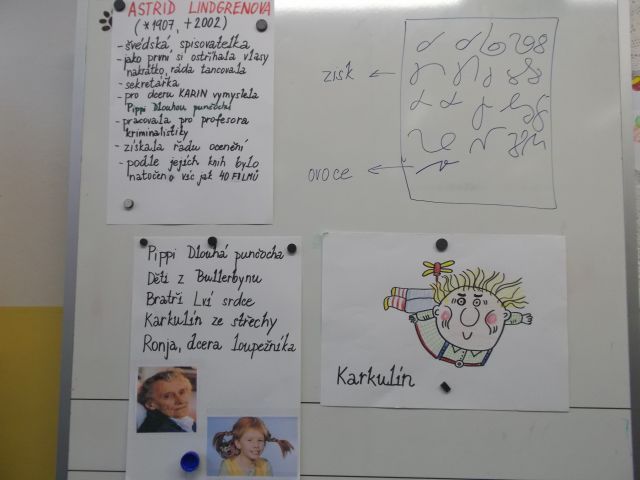 ASTRID LINDGRENOVÁ
(*1907, +2002)
- švédská, spisovatelka
- jako první si ostříhala vlasy
nakrátko, ráda tancovala
- sekretářka
- pro dceru KARIN vymyslela
Pippi Dlouhou punčochu
- pracovala pro profesora
kriminalistiky
- získala řadu ocenění
- podle jejích knih bylo
natočeno víc jak 40 FILMŮ
zisk
ovoce
Pippi Dlouhá punčocha
Děti z Bullerbynu
Bratři Lví srdce
Karkulín ze střechy
Ronja, dcera loupežníka
Karkulín